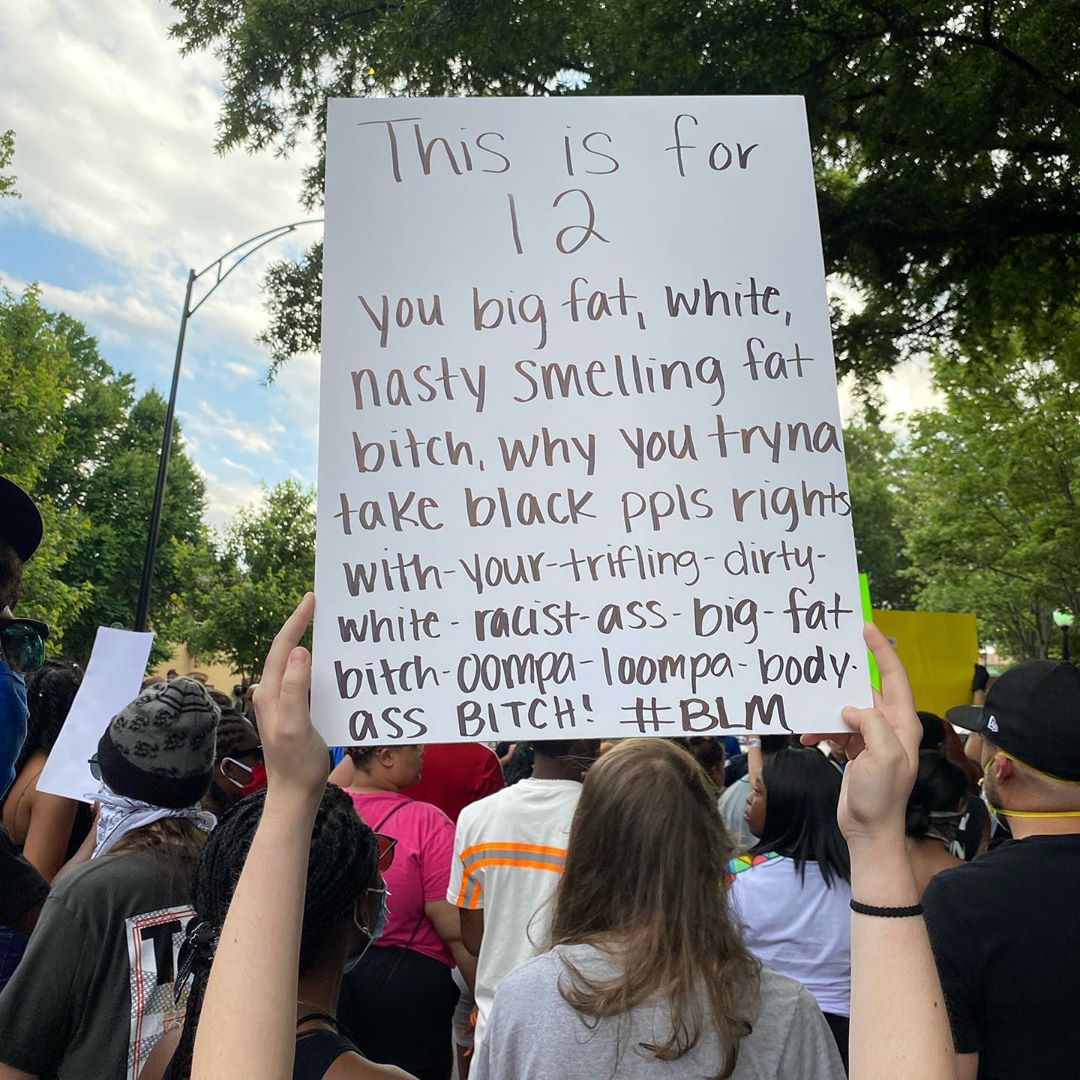 This is for
12
you big fat, white,
nasty smelling fat
bitch, why you tryna
take black ppls rights
with-your-trifling-dirty-
white-racist-ass-big-fat
bitch-oompa-loompa-body-
ass BITCH! #BLM